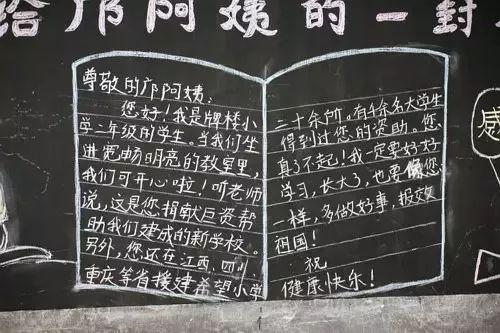 给邝阿姨的一封
尊敬的邝阿姨:
您好!我是牌楼小
学二年级的学生。当我们坐
进宽畅明亮的教室里,
我们可开心啦!听老师
说,这是您捐献巨资帮
助我们建成的新学校。
另外,您还在江西、四川
重庆等省援建希望小学
三十余所,有千余名大学生
得到过您的资助。您
真了不起!我一定要好好
学习,长大了,也要像您
一样,多做好事,报效
祖国!
祝
健康快乐!
感